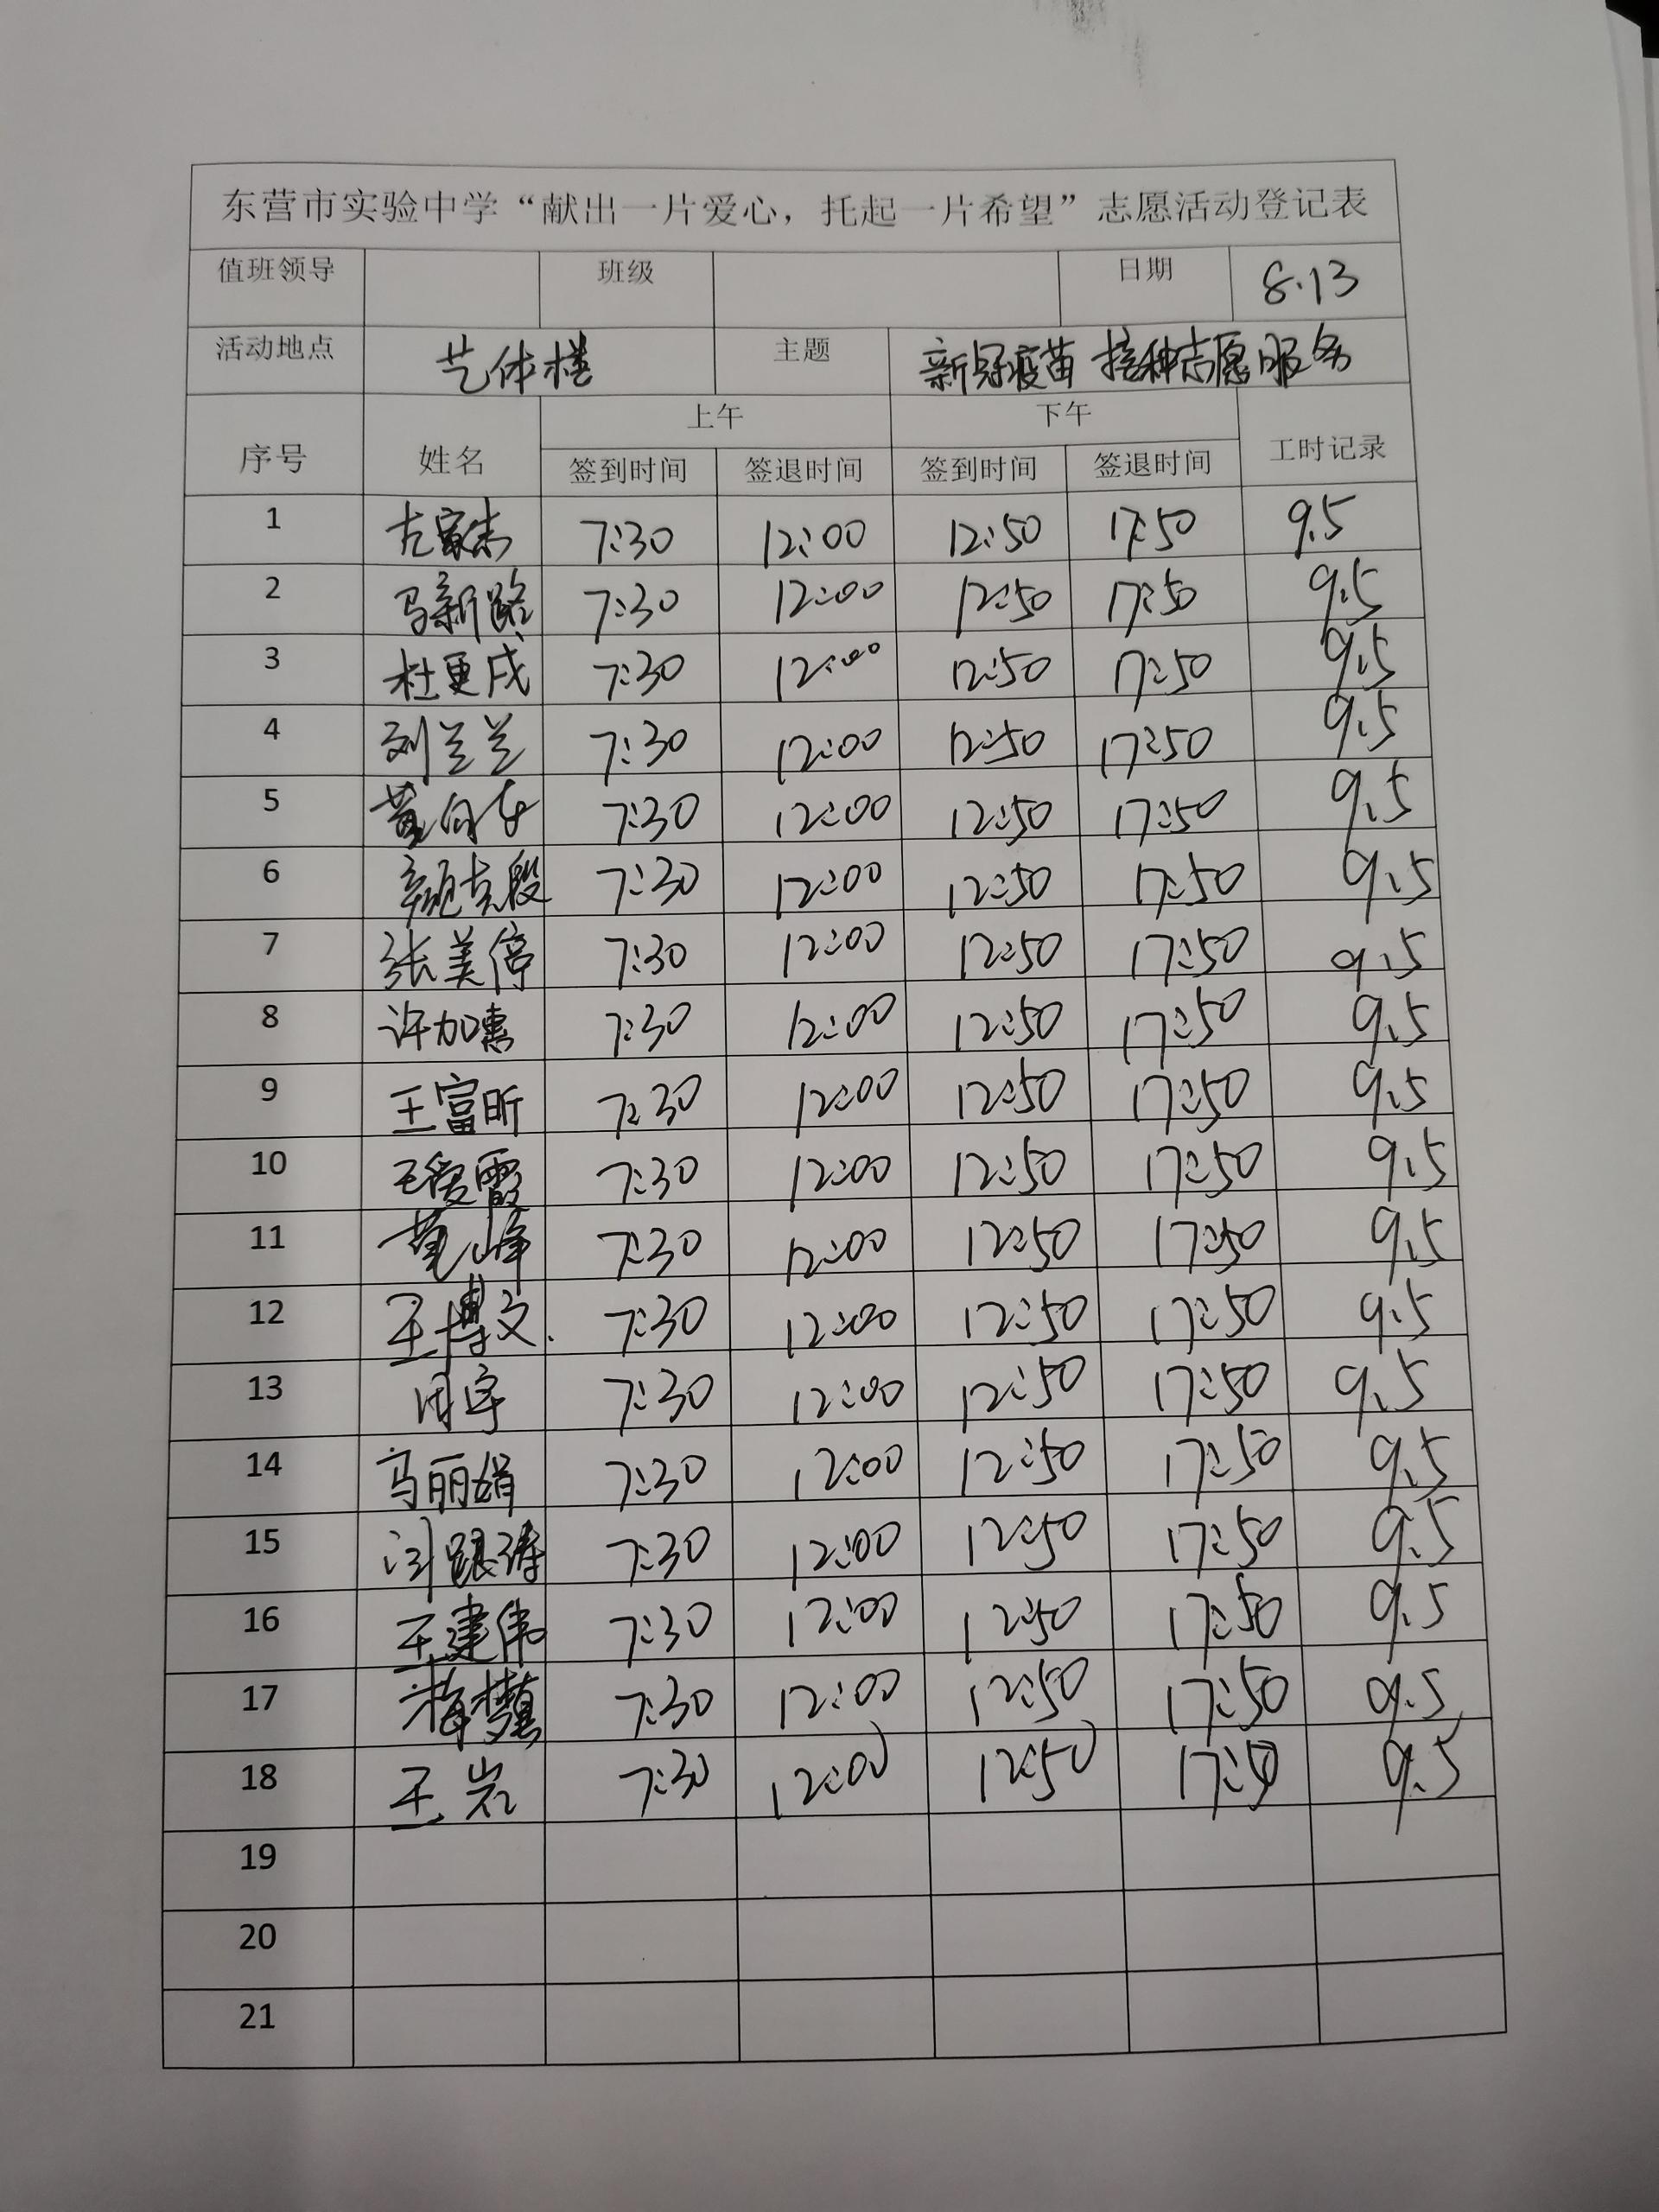 东营市实验中学“献出一片爱心，托起一片希望”志愿活动登记表
值班领导 班级 日期 8.13
活动地点 艺体楼 主题 新冠疫苗接种志愿服务
上午 下午
序号 姓名 签到时间 签退时间 签到时间 签退时间 工时记录
1 7:30 12:00 12:50 17:50 9.5
2 马新路 7:30 12:00 12:50 17:50 9.5
3 杜更戌 7:30 12:00 12:50 17:50 9.5
4 刘兰兰 7:30 12:00 12:50 17:50 9.5
5 7:30 12:00 12:50 17:50 9.5
6 7:30 12:00 12:50 17:50 9.5
7 张美停 7:30 12:00 12:50 17:50 9.5
8 许加惠 7:30 12:00 12:50 17:50 9.5
9 王富昕 7:30 12:00 12:50 17:50 9.5
10 王爱霞 7:30 12:00 12:50 17:50 9.5
11 7:30 12:00 12:50 17:50 9.5
12 王博文 7:30 12:00 12:50 17:50 9.5
13 周宇 7:30 12:00 12:50 17:50 9.5
14 马丽娟 7:30 12:00 12:50 17:50 9.5
15 7:30 12:00 12:50 17:50 9.5
16 王建伟 7:30 12:00 12:50 17:50 9.5
17 7:30 12:00 12:50 17:50 9.5
18 王岩 7:30 12:00 12:50 17:50 9.5
19
20
21